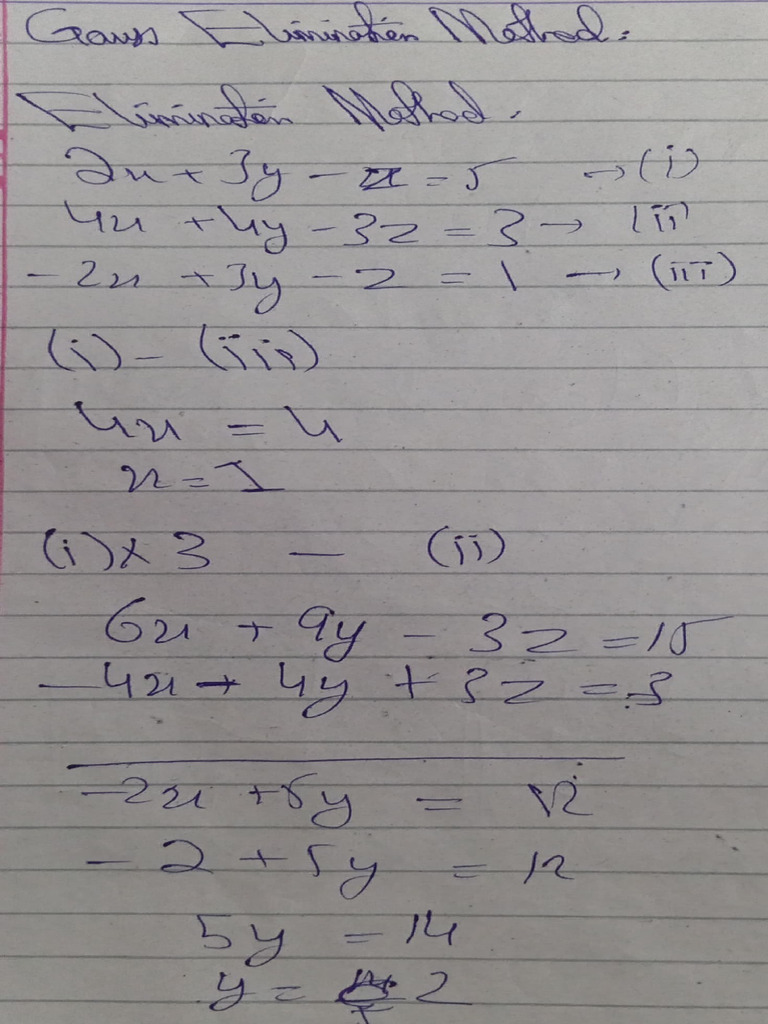 Gauss Elimination Method:
Elimination Method.
2x + 3y - z = 5 → (i)
4x + 4y - 3z = 3 → (ii)
- 2x + 3y - z = 1 → (iii)
(i) - (iii)
4x = 4
x = 1
(i) × 3 - (ii)
6x + 9y - 3z = 15
- 4x + 4y + 3z = 3
-2x + 5y = 12
- 2 + 5y = 12
5y = 14
y = 2